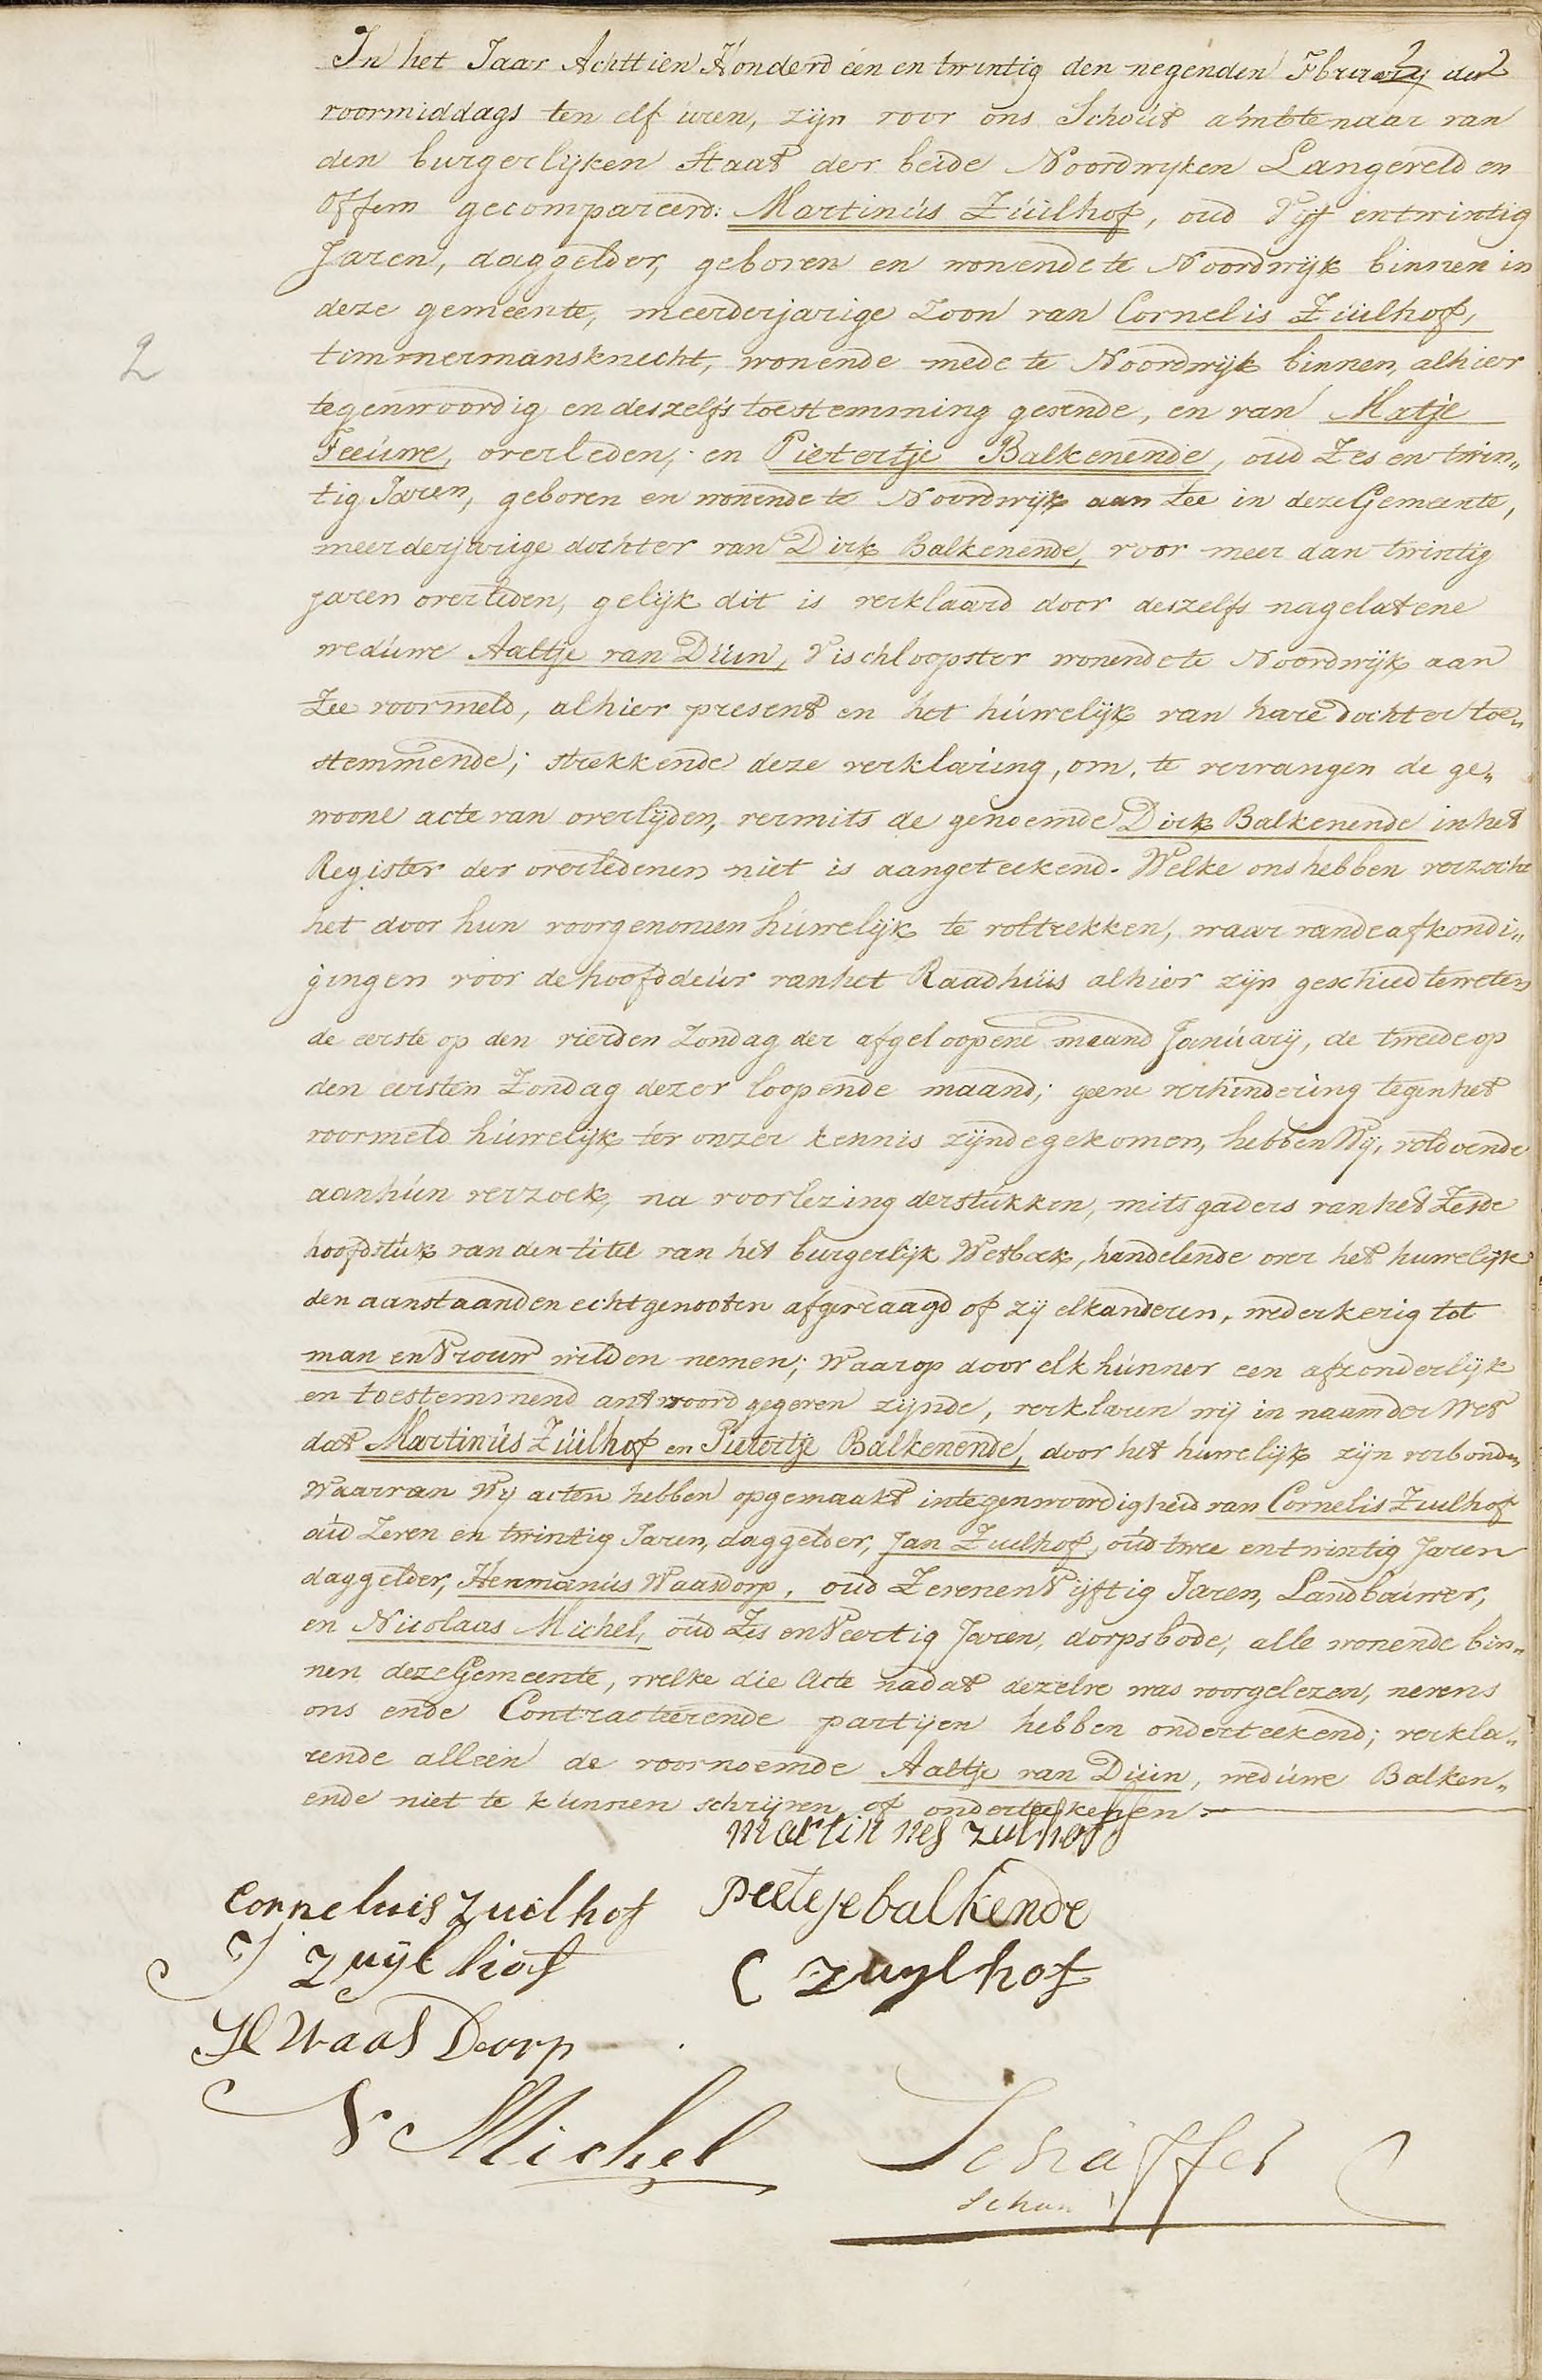 In het Jaar Achttien Honderd een en twintig den negenden Fbruarij des
voormiddags ten elf uren, zijn voor ons Schout ambtenaar van
den burgerlijken Staat der beide Noordwijken Langeveld en
Offem gecompareerd: Martinus Zuilhof, oud Vijf en twintig
Jaren, daggelder, geboren en wonende te Noordwijk binnen in
deze gemeente, meerderjarige zoon van Cornelis Zuilhof,
2
timmermansknecht, wonende mede te Noordwijk binnen, alhier
tegenwoordig en deszelfs toestemming gevende, en van Matje
Feeuwe, overleden; en Pietertje Balkenende, oud Zes en twin„
tig Jaren, geboren en wonende te Noordwijk aan Zee in deze Gemeente,
meerderjarige dochter van Dirk Balkenende, voor meer dan twintig
jaren overleden, gelijk dit is verklaard door deszelfs nagelatene
weduwe Aaltje van Duin, Vischloopster wonende te Noordwijk aan
Zee voormeld, alhier present en het huwelijk van hare dochter toe„
stemmende; strekkende deze verklaring, om te vervangen de ge„
woone acte van overlijden, vermits de genoemde Dirk Balkenende in het
Register der overledenen niet is aangeteekend. Welke ons hebben verzocht
het door hun voorgenomen huwelijk te voltrekken, waar van de afkondi„
gingen voor de hoofddeur van het Raadhuis alhier zijn geschied te weten
de eerste op den vierden Zondag der afgeloopene maand Januarij, de tweede op
den eersten Zondag dezer loopende maand; geene verhindering tegen het
voormeld huwelijk ter onzer kennis zijnde gekomen, hebben Wij, voldoende
aan hun verzoek, na voorlezing der stukken, mitsgaders van het Zesde
hoofdstuk van den titel van het burgerlijk Wetboek, handelende over het huwelijk
den aanstaanden echtgenooten afgevraagd of zij elkanderen, wederkerig tot
man en Vrouw wilden nemen; Waarop door elk hunner een afzonderlijk
en toestemmend antwoord gegeven zijnde, verklaren wij in naam der Wet
dat Martinus Zuilhof en Pietertje Balkenende, door het huwelijk zijn verbonden
Waarvan Wij acten hebben opgemaakt in tegenwoordigheid van Cornelis Zuilhof
oud Zeven en twintig Jaren, daggelder, Jan Zuilhof, oud twee en twintig Jaren
daggelder, Hermanus Waasdorp, oud Zeven en Vijftig Jaren, Landbouwer,
en Nicolaas Michel, oud Zes en Veertig Jaren, dorpsbode, alle wonende bin„
nen deze Gemeente, welke die Acte nadat dezelve was voorgelezen, nevens
ons ende Contracteerende partijen hebben onderteekend; verkla„
rende alleen de voornoemde Aaltje van Duin, weduwe Balken„
ende niet te kunnen schrijven of onderteekenen.
martin nes zulhof
Corneluis zuilhof peeteje balkende
J zuijlhof C zuylhof
H Waas Dorp
N Michel Schäffer
Schout